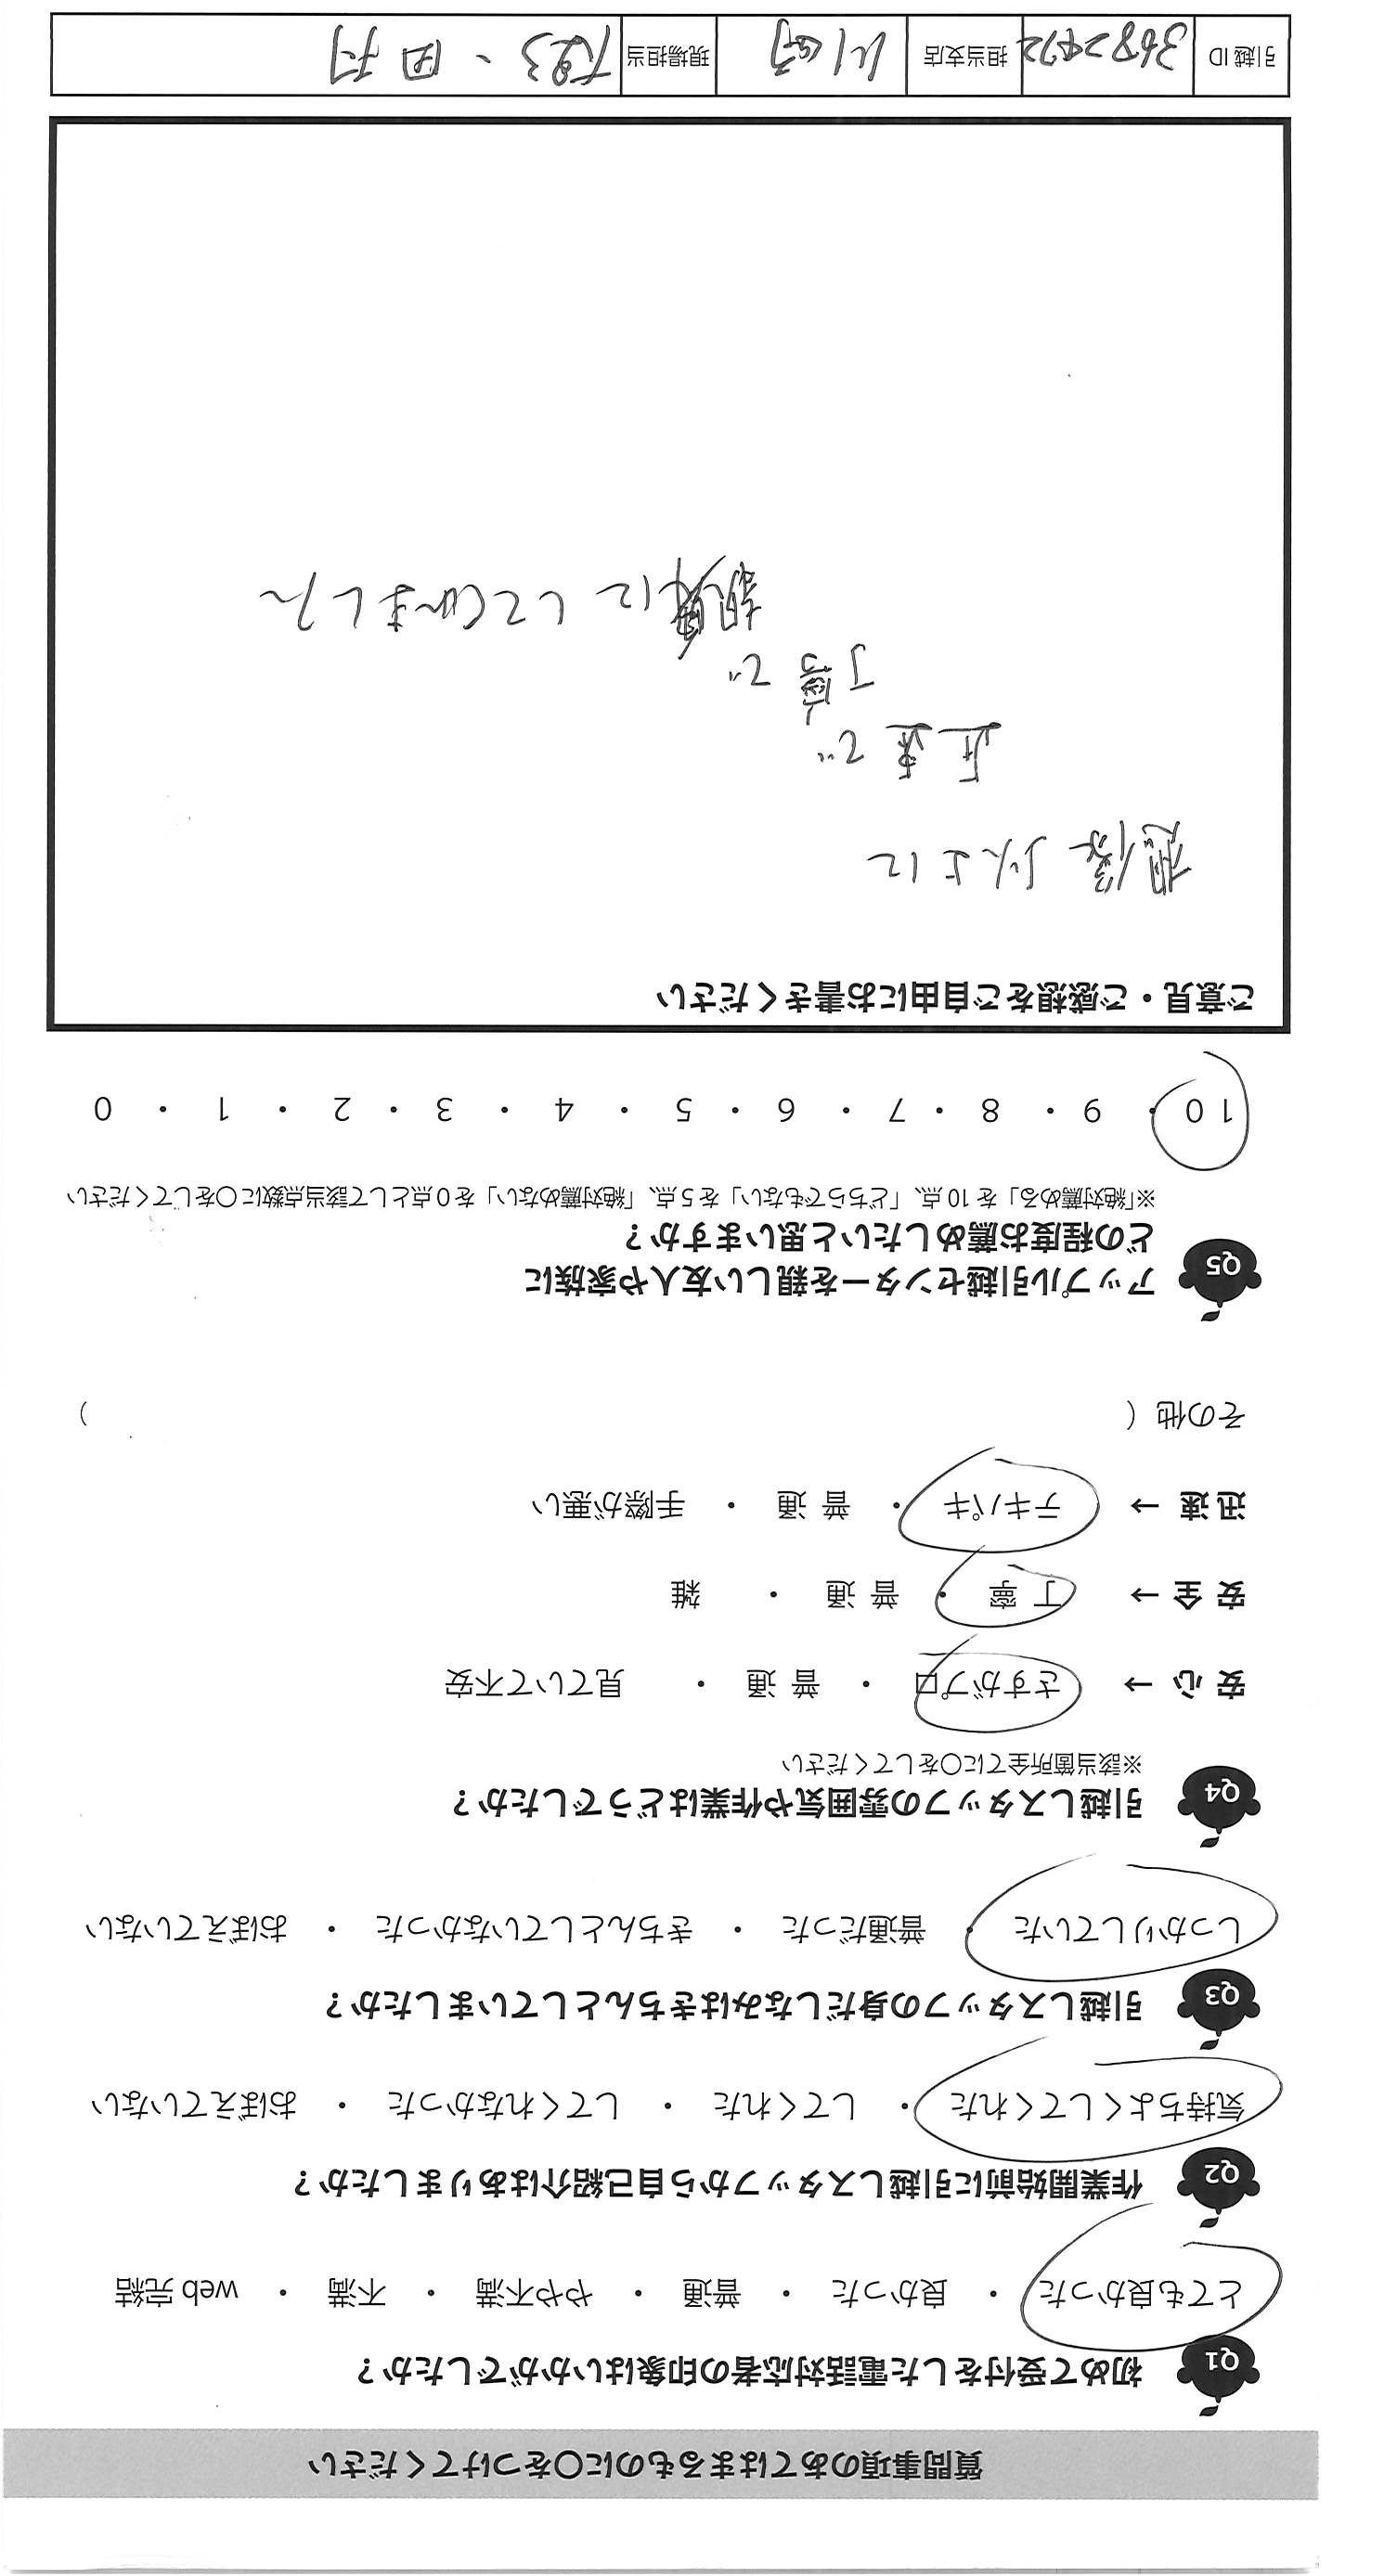 質問事項のあてはまるものに○をつけてください
Q1 初めて受付をした電話対応者の印象はいかがでしたか？
とても良かった ・ 良かった ・ 普通 ・ やや不満 ・ 不満 ・ web 完結
Q2 作業開始前に引越しスタッフから自己紹介はありましたか？
気持ちよくしてくれた ・ してくれた ・ してくれなかった ・ おぼえていない
Q3 引越しスタッフの身だしなみはきちんとしていましたか？
しっかりしていた ・ 普通だった ・ きちんとしていなかった ・ おぼえていない
Q4 引越しスタッフの雰囲気や作業はどうでしたか？
※該当箇所全てに○をしてください
安 心 → さすがプロ ・ 普 通 ・ 見ていて不安
安 全 → 丁 寧 ・ 普 通 ・ 雑
迅 速 → テキパキ ・ 普 通 ・ 手際が悪い
その他（ ）
Q5 アップル引越センターを親しい友人や家族に
どの程度お薦めしたいと思いますか？
※「絶対薦める」を 10 点、「どちらでもない」を 5 点、「絶対薦めない」を 0 点として該当点数に○をしてください
10 ・ 9 ・ 8 ・ 7 ・ 6 ・ 5 ・ 4 ・ 3 ・ 2 ・ 1 ・ 0
ご意見・ご感想をご自由にお書きください
想像以上に
迅速で
丁寧で
親身にしてくれました
引越 ID 3682472 担当支店 川崎 現場担当 ・田村